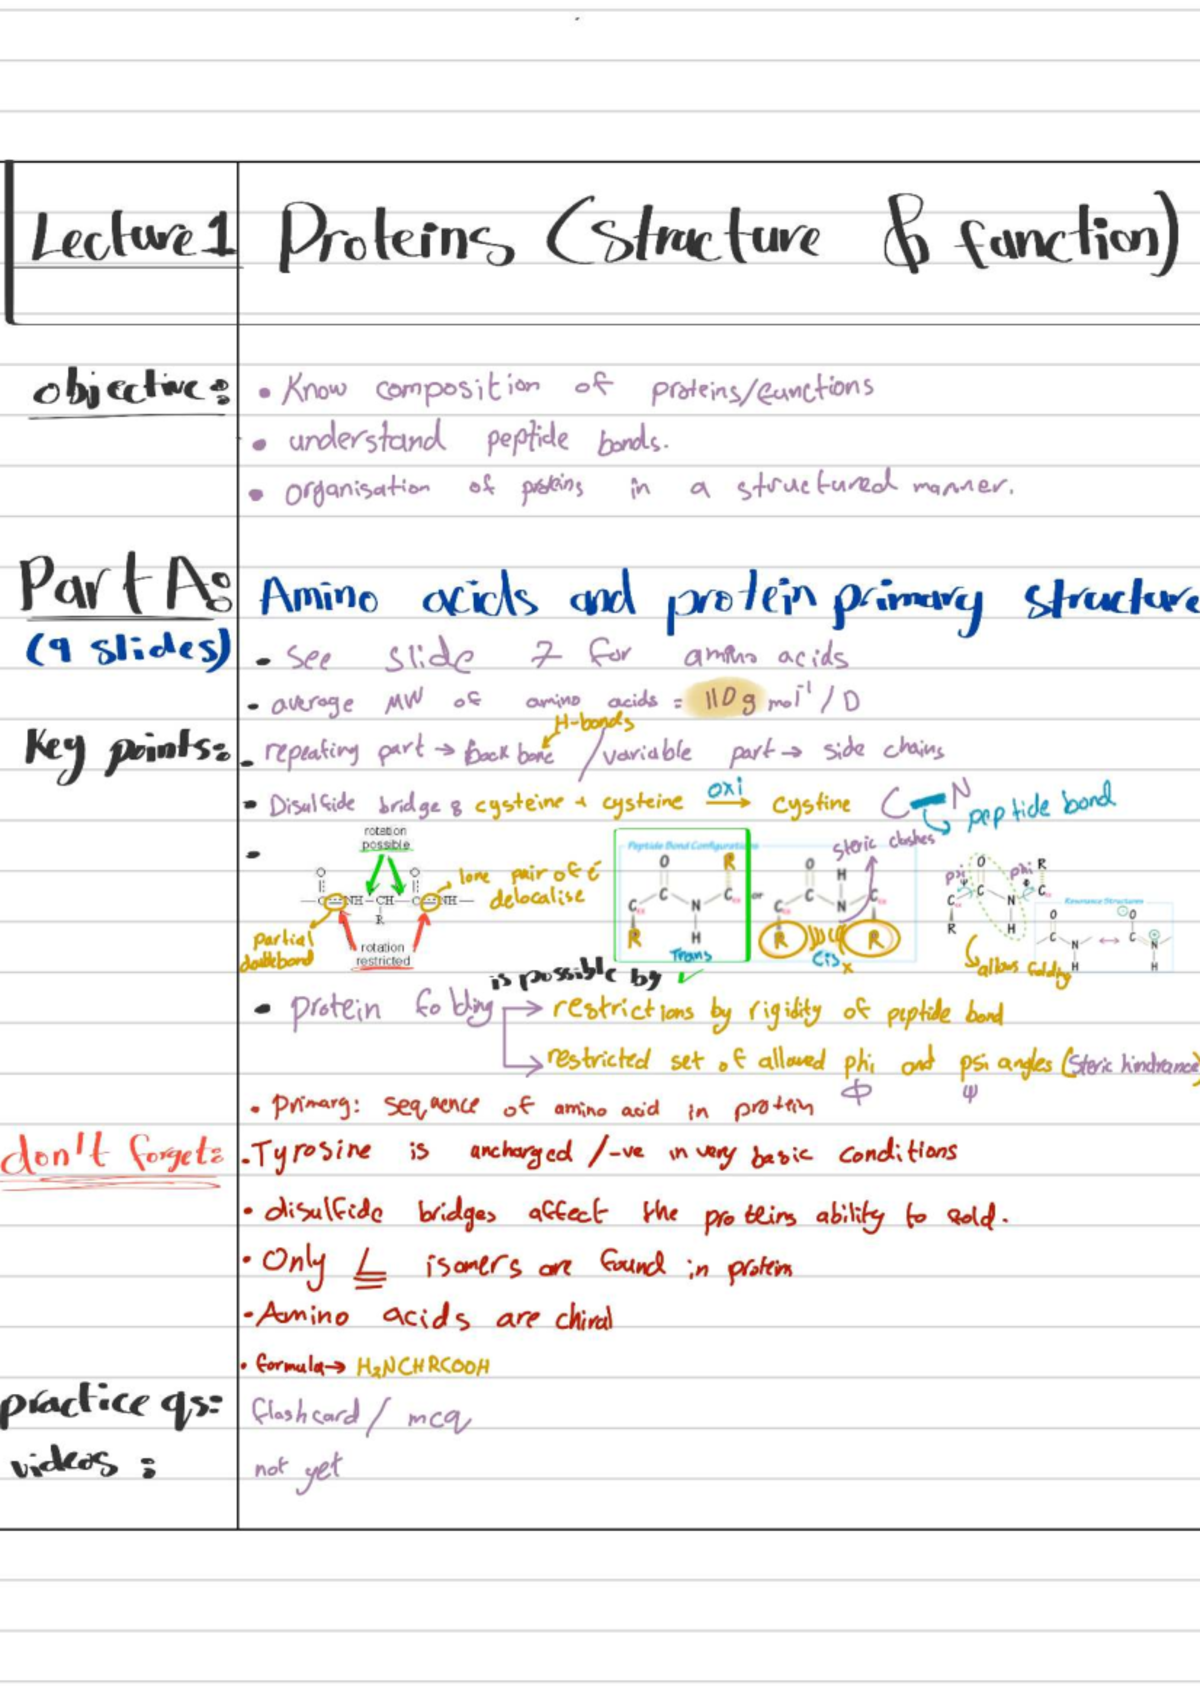 Lecture 1 Proteins (structure & function)
objective: • Know composition of proteins/functions
• understand peptide bonds.
• organisation of proteins in a structured manner.
Part A: Amino acids and protein primary structure
(9 slides) • see slide 7 for amino acids
• average MW of amino acids = 110g mol⁻¹/D
H-bonds
Key points: • repeating part → backbone / variable part → side chains
• Disulfide bridge: cysteine + cysteine oxi → cystine C N peptide bond
rotation possible
lone pair of e⁻ delocalise
partial double bond
rotation restricted
Peptide Bond Configurations
Trans
or
Cis x
steric clashes
psi phi
Resonance Structures
allows folding
is possible by ✓
• protein folding → restrictions by rigidity of peptide bond
→ restricted set of allowed phi and psi angles (steric hindrance)
Φ Ψ
• Primary: sequence of amino acid in protein
don't forget: • Tyrosine is uncharged /-ve in very basic conditions
• disulfide bridges affect the proteins ability to fold.
• Only L isomers are found in protein
• Amino acids are chiral
• formula → H₂NCHRCOOH
practice qs: flashcard / mcq
videos: not yet